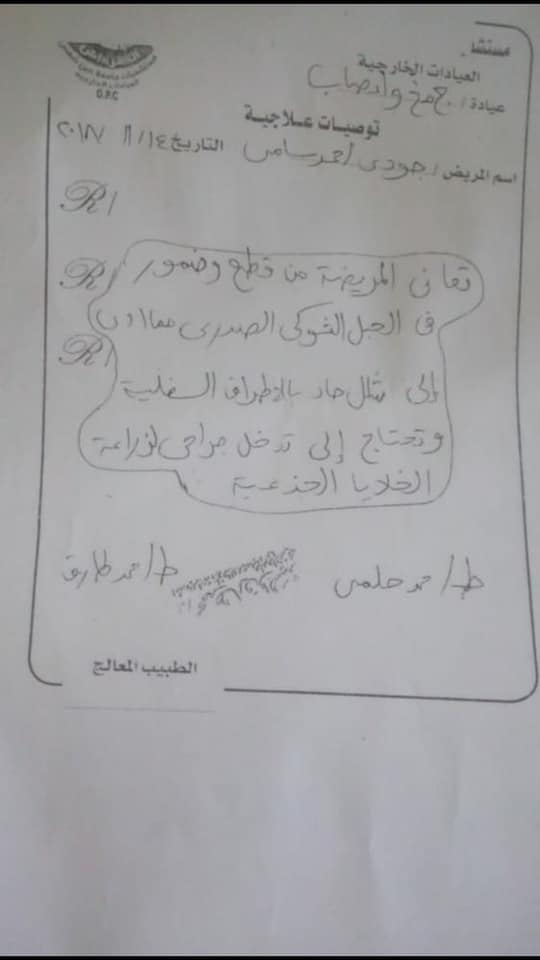 مستشا
العيادات الخارجية
عيادة / ج مخ وأعصاب
توصيات علاجية
اسم المريض / جودى أحمد سامى التاريخ ١٤ / ١١ / ٢٠١٧
R/
تعانى المريضة من قطع وضمور
R/
فى الحبل الشوكى الصدرى مما أدى
R/
إلى شلل حاد بالأطراف السفلية
وتحتاج إلى تدخل جراحى لزراعة
الخلايا الجذعية
ط/ محمد حلمى
ط/ أحمد طارق
الطبيب المعالج
O.P.C